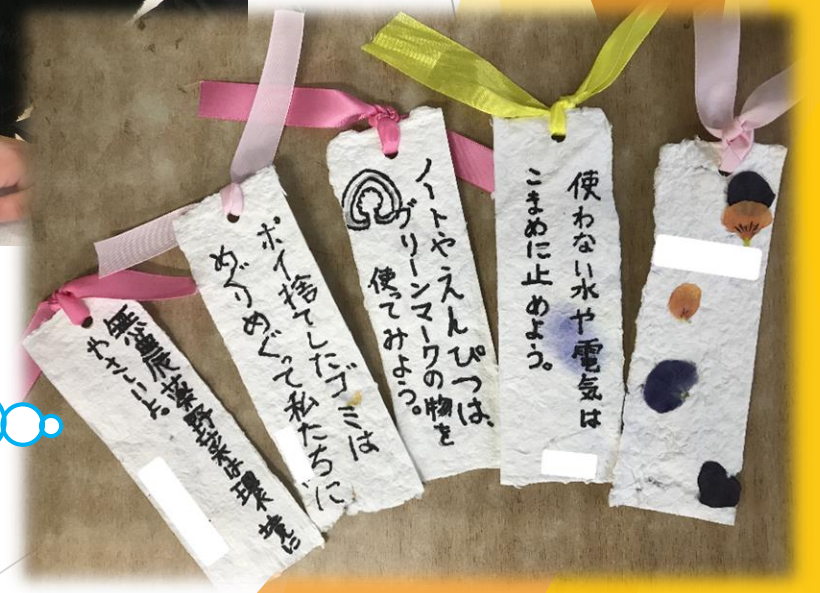 使わない水や電気は
こまめに止めよう。
ノートやえんぴつは、
グリーンマークの物を
使ってみよう。
ポイ捨てしたゴミは
めぐりめぐって私たちに
無農薬野菜は環境に
やさしいよ。